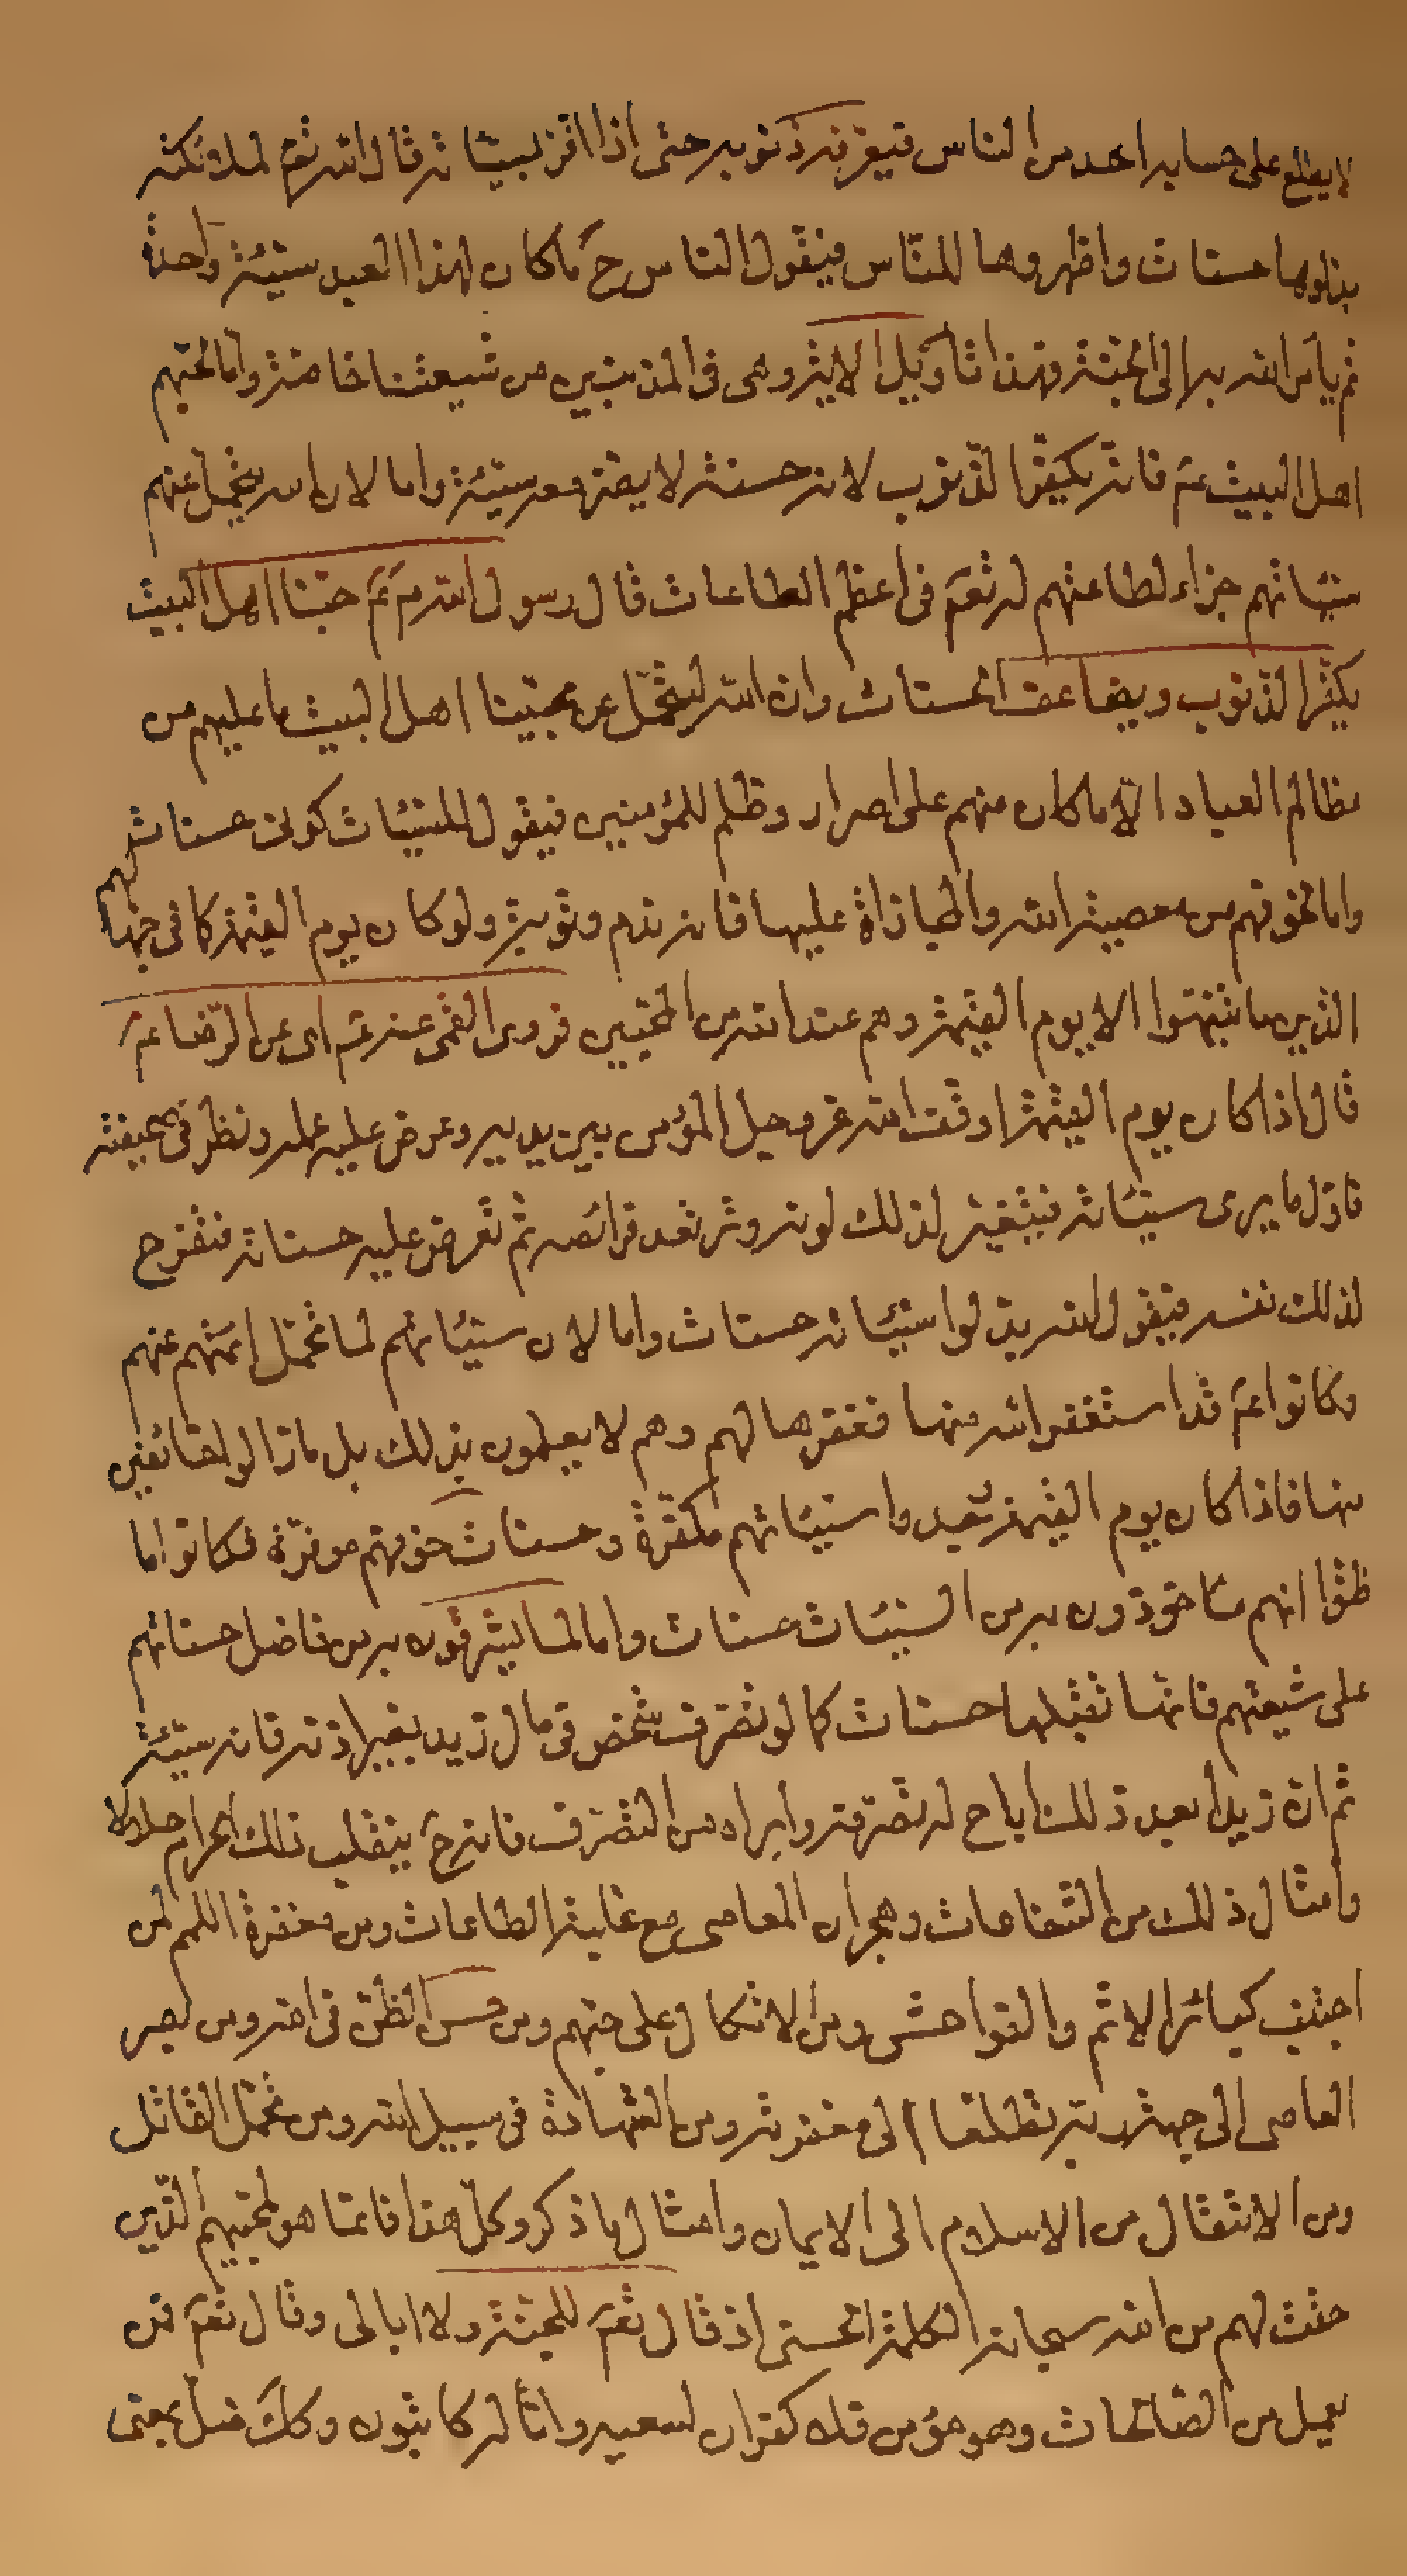 لا يطلع على حسابه احد من الناس فيعرفه ذنوبه حتى اذا اقر بسيئاته قال الله تعم لملائكته
بدلوها حسنات واظهروها للناس فيقول الناس ح ما كان لهذا العبد سيئة واحدة
ثم يأمر الله به الى الجنة فهذا تأويل الاية وهى فى المذنبين من شيعتنا خاصة واما لحبهم
اهل البيت عم فانه يكفر الذنوب لانه حسنة لا يضر معه سيئة واما لان الله يتحمل عنهم
سيئاتهم جزاء لطاعتهم له تعم فى اعظم الطاعات قال رسول الله صم حبنا اهل البيت
يكفر الذنوب ويضاعف الحسنات وان الله ليتحمل عن محبينا اهل البيت ما عليهم من
مظالم العباد الا ما كان منهم على اصرار وظلم للمؤمنين فيقول للسيئات كونى حسنات
واما لخوفهم من معصية الله والمجازاة عليها فانه ندم وتوبة ولو كان يوم القيمة كما فى جهالهم
الذين ما تنبهوا الا يوم القيمة وهم عند الله من المحبين فروى القمى عنه عم اى عن الرضا عم
قال اذا كان يوم القيمة اوقف الله عز وجل المؤمن بين يديه وعرض عليه عمله ونظر فى صحيفته
فاول ما يرى سيئاته فيتغير لذلك لونه وترتعد فرائصه ثم تعرض عليه حسناته فتفرح
لذلك نفسه فيقول الله بدلوا سيئاته حسنات واما لان سيئاتهم لما تحمل ائمتهم عنهم
وكانوا عم قد استغفروا الله منها فغفرها لهم وهم لا يعلمون بذلك بل ما زالوا خائفين
منها فاذا كان يوم القيمة وجدوا سيئاتهم مكفرة وحسنات خوفهم موفرة فكانوا اما
ظنوا انهم مأخوذون به من السيئات حسنات واما لما يشرفون به من فاضل حسناتهم
على شيعتهم فانها تقلبها حسنات كما لو تصرف شخص فى مال زيد بغير اذنه فانه سيئة
ثم ان زيدا بعد ذلك اباح له تصرفه وابراه من التصرف فانه ح ينقلب ذلك الحرام حلالا
وامثال ذلك من الشفاعات وهجران المعاصى مع غلبة الطاعات ومن مغفرة اللمم لمن
اجتنب كبائر الاثم والفواحش ومن الاتكال على حبهم ومن حسن الظن فى الله ومن
العاصى الى جهة ربه تطلعا الى مغفرته ومن الشهادة فى سبيل الله ومن تحمل القاتل
ومن الانتقال من الاسلام الى الايمان وامثال ما ذكر وكل هذا فانما هو لمحبيهم الذين
حقت لهم من الله سبحانه الكلمة الحسنى اذ قال تعم للجنة ولا ابالى وقال تعم فمن
يعمل من الصالحات وهو مؤمن فلا كفران لسعيه وانا له كاتبون وكك